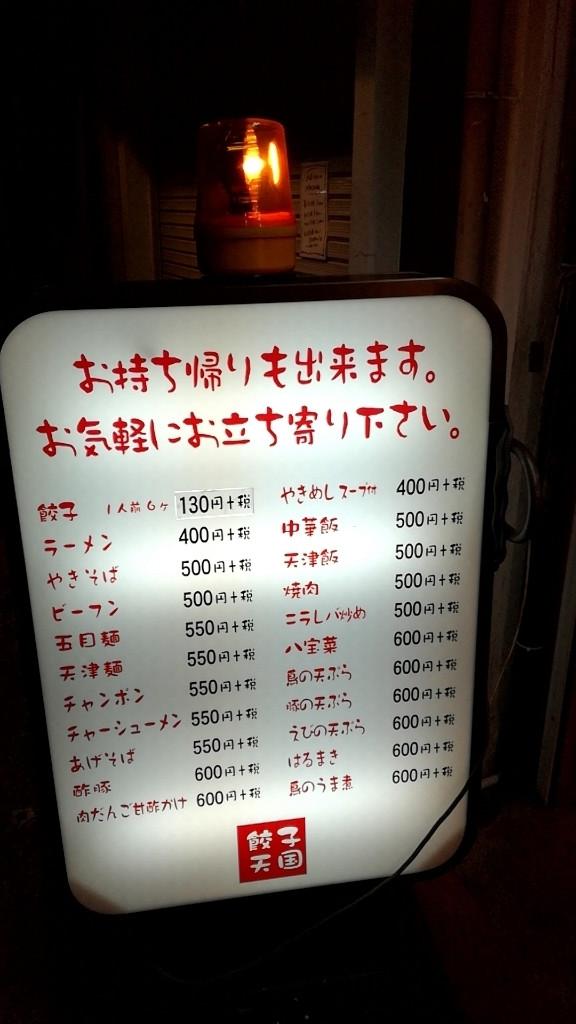 お持ち帰りも出来ます。
お気軽にお立ち寄り下さい。
餃子 1人前6ヶ 130円+税
ラーメン 400円+税
やきそば 500円+税
ビーフン 500円+税
五目麺 550円+税
天津麺 550円+税
チャンポン 550円+税
チャーシューメン 550円+税
あげそば 550円+税
酢豚 600円+税
肉だんご甘酢かけ 600円+税
やきめしスープ付 400円+税
中華飯 500円+税
天津飯 500円+税
焼肉 500円+税
ニラレバ炒め 500円+税
八宝菜 600円+税
鳥の天ぷら 600円+税
豚の天ぷら 600円+税
えびの天ぷら 600円+税
はるまき 600円+税
鳥のうま煮 600円+税
餃子
天国